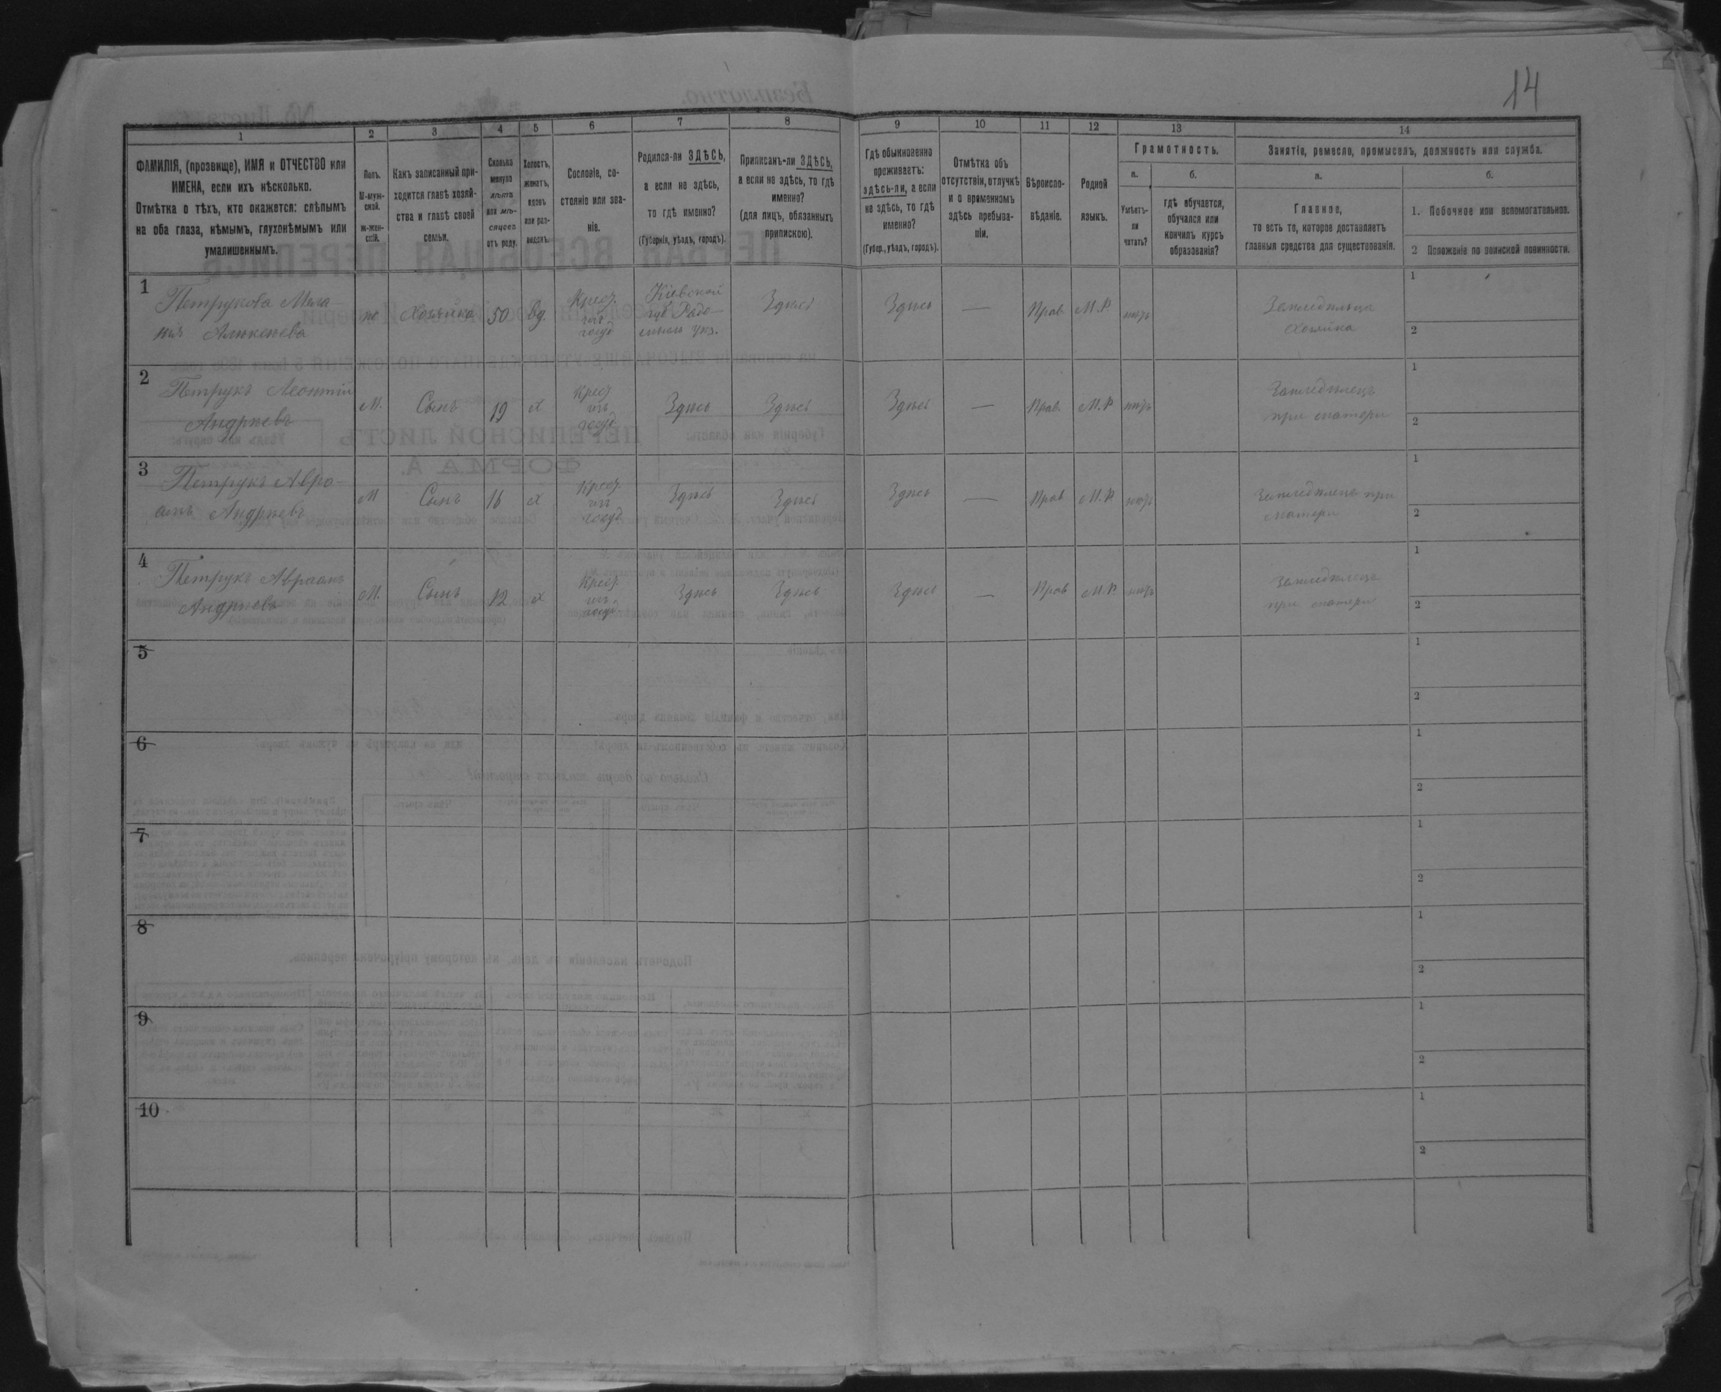 14
1
2
3
4
5
6
7
8
9
10
11
12
13
14
ФАМИЛІЯ, (прозвище), ИМЯ и ОТЧЕСТВО или
ИМЕНА, если ихъ нѣсколько.
Отмѣтка о тѣхъ, кто окажется: слѣпымъ
на оба глаза, нѣмымъ, глухонѣмымъ или
умалишеннымъ.
Полъ.
М-муж-
ской.
ж-жен-
скій.
Какъ записанный при-
ходится главѣ хозяй-
ства и главѣ своей
семьи.
Сколько
минуло
лѣтъ
или мѣ-
сяцевъ
отъ роду.
Холостъ,
женатъ,
вдовъ
или раз-
веденъ.
Сословіе, со-
стояніе или зва-
ніе.
Родился-ли ЗДѢСЬ,
а если не здѣсь,
то гдѣ именно?
(Губернія, уѣздъ, городъ).
Приписанъ-ли ЗДѢСЬ,
а если не здѣсь, то гдѣ
именно?
(для лицъ, обязанныхъ
припискою).
Гдѣ обыкновенно
проживаетъ:
здѣсь-ли, а если
не здѣсь, то гдѣ
именно?
(Губер., уѣздъ, городъ).
Отмѣтка объ
отсутствіи, отлучкѣ
и о временномъ
здѣсь пребыва-
ніи.
Вѣроиспо-
вѣданіе.
Родной
языкъ.
Грамотность.
а.
Умѣетъ-
ли
читать?
б.
гдѣ обучается,
обучался или
кончилъ курсъ
образованія?
Занятіе, ремесло, промыселъ, должность или служба.
а.
Главное,
то есть то, которое доставляетъ
главныя средства для существованія.
б.
1. Побочное или вспомогательное.
2 Положеніе по воинской повинности.
1
Петрукова Мела-
нія
ж
Хозяйка
50
Вд
Крест.
изъ
госуд
Кіевской
губ Радо-
мысл уѣз.
Здѣсь
Здѣсь
—
Прав
М.Р
нѣтъ
Земледѣлица
Хозяйка
1
2
2
Петрукъ Леонтій
Андреевъ
М.
Сынъ
19
х
Крест
изъ
госуд
Здѣсь
Здѣсь
Здѣсь
—
Прав.
М.Р
нѣтъ
Земледѣлецъ
при матери
1
2
3
Петрукъ
Андреевъ
М
Сынъ
16
х
Крест.
изъ
госуд.
Здѣсь
Здѣсь
Здѣсь
—
Прав
М.Р
нѣтъ
Земледѣлецъ при
матери
1
2
4
Петрукъ Авраамъ
Андреевъ
М.
Сынъ
12
х
Крест.
изъ
госуд
Здѣсь
Здѣсь
Здѣсь
—
Прав
М.Р
нѣтъ
Земледѣлецъ
при матери
1
2
5
1
2
6
1
2
7
1
2
8
1
2
9
1
2
10
1
2